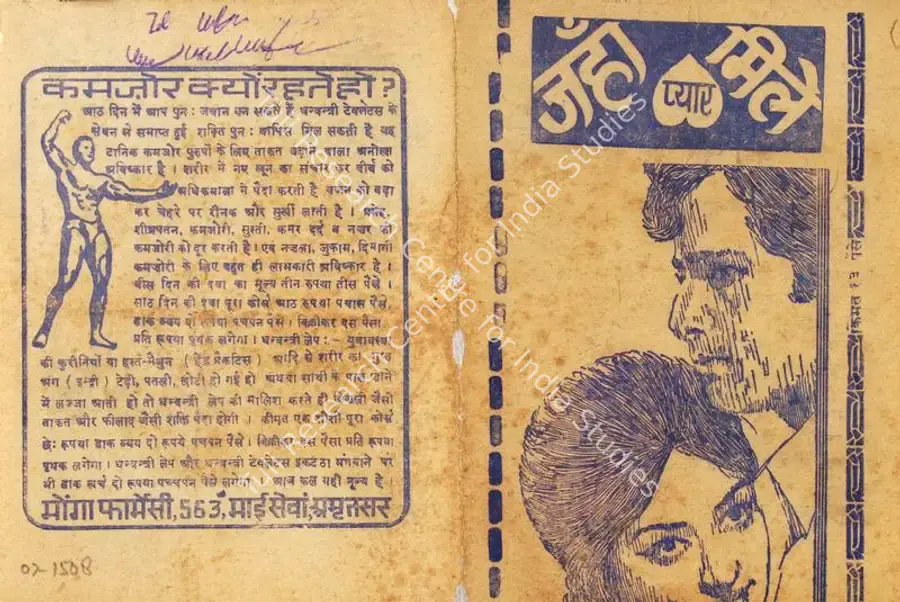 कमजोर क्यों रहते हो ?
आठ दिन में आप पुनः जवान बन सकते हैं धन्वन्त्री टेबलेटस के
सेवन से समाप्त हुई शक्ति पुनः वापिस मिल सकती है यह
टानिक कमजोर पुरुषों के लिए ताकत बढ़ाने वाला अनोखा
अविष्कार है । शरीर में नए खून का संचार कर वीर्य को
अधिकमात्रा में पैदा करती है वजन को बढ़ा
कर चेहरे पर रौनक और सुर्खी लाती है ।
शीघ्रपतन, कमजोरी, सुस्ती, कमर दर्द व नजर की
कमजोरी को दूर करती है । एवं नजला, जुकाम, दिमागी
कमजोरी के लिए बहुत ही लाभकारी अविष्कार है ।
बीस दिन की दवा का मूल्य तीन रुपया तीस पैसे ।
साठ दिन की दवा पूरा कोर्स आठ रुपया पचास पैसे,
डाक व्यय दो रुपया पचपन पैसे । बिक्रीकर दस पैसा
प्रति रूपया पृथक लगेगा । धन्वन्त्री लेप :- युवावस्था
की कुरीतियों या हस्त-मैथुन ( हैंड प्रैकटिस ) आदि से शरीर का गुप्त
अंग ( इन्द्री ) टेढ़ी, पतली, छोटी हो गई हो अथवा साथी के पास जाने
में लज्जा आती हो तो धन्वन्त्री लेप की मालिश करते ही बिजली जैसी
ताकत और फौलाद जैसी शक्ति पैदा होगी । कीमत एक शीशी पूरा कोर्स
छैः रूपया डाक व्यय दो रूपये पचपन पैसे । बिक्रीकर दस पैसा प्रति रूपया
पृथक लगेगा । धन्वन्त्री लेप और धन्वन्त्री टेबलेटस इकटठा मंगवाने पर
भी डाक खर्च दो रूपया पच्चपन पैसे लगेगा । आज कल यही मूल्य है ।
मोंगा फार्मेसी, 563, माई सेवां, अमृतसर
02-1508
जहाँ प्यार मिले
किमत पैसे
Research Centre for India Studies
Research Centre for India Studies